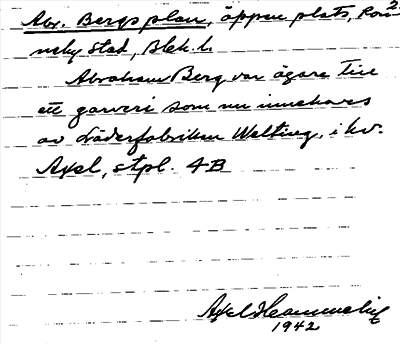 Abr. Bergs plan, öppen plats, Ron-
2
neby stad, Blek. l.
Abraham Berg var ägare till
ett garveri som nu innehaves
av Läderfabriken Welting, i kv.
Axel, stpl. 4B
Axel
1942